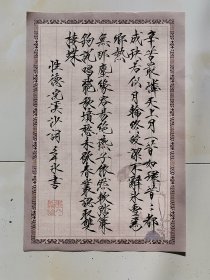 辛苦最憐天上月一昔如環昔昔都
成玦若似月輪終皎潔不辭冰雪為
卿熱
無那塵緣容易絕燕子依然軟踏簾
鉤說唱罷秋墳愁未歇春叢認取雙
棲蝶
性德浣溪沙詞 永書